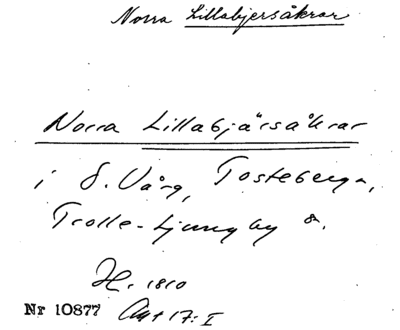 Norra Lillabjersåkrar
Norra Lillabjärsåkrar
i S. Vång, Tosteberga,
Trolle-Ljungby s.
H. 1810
Nr 10877 Akt 17:I